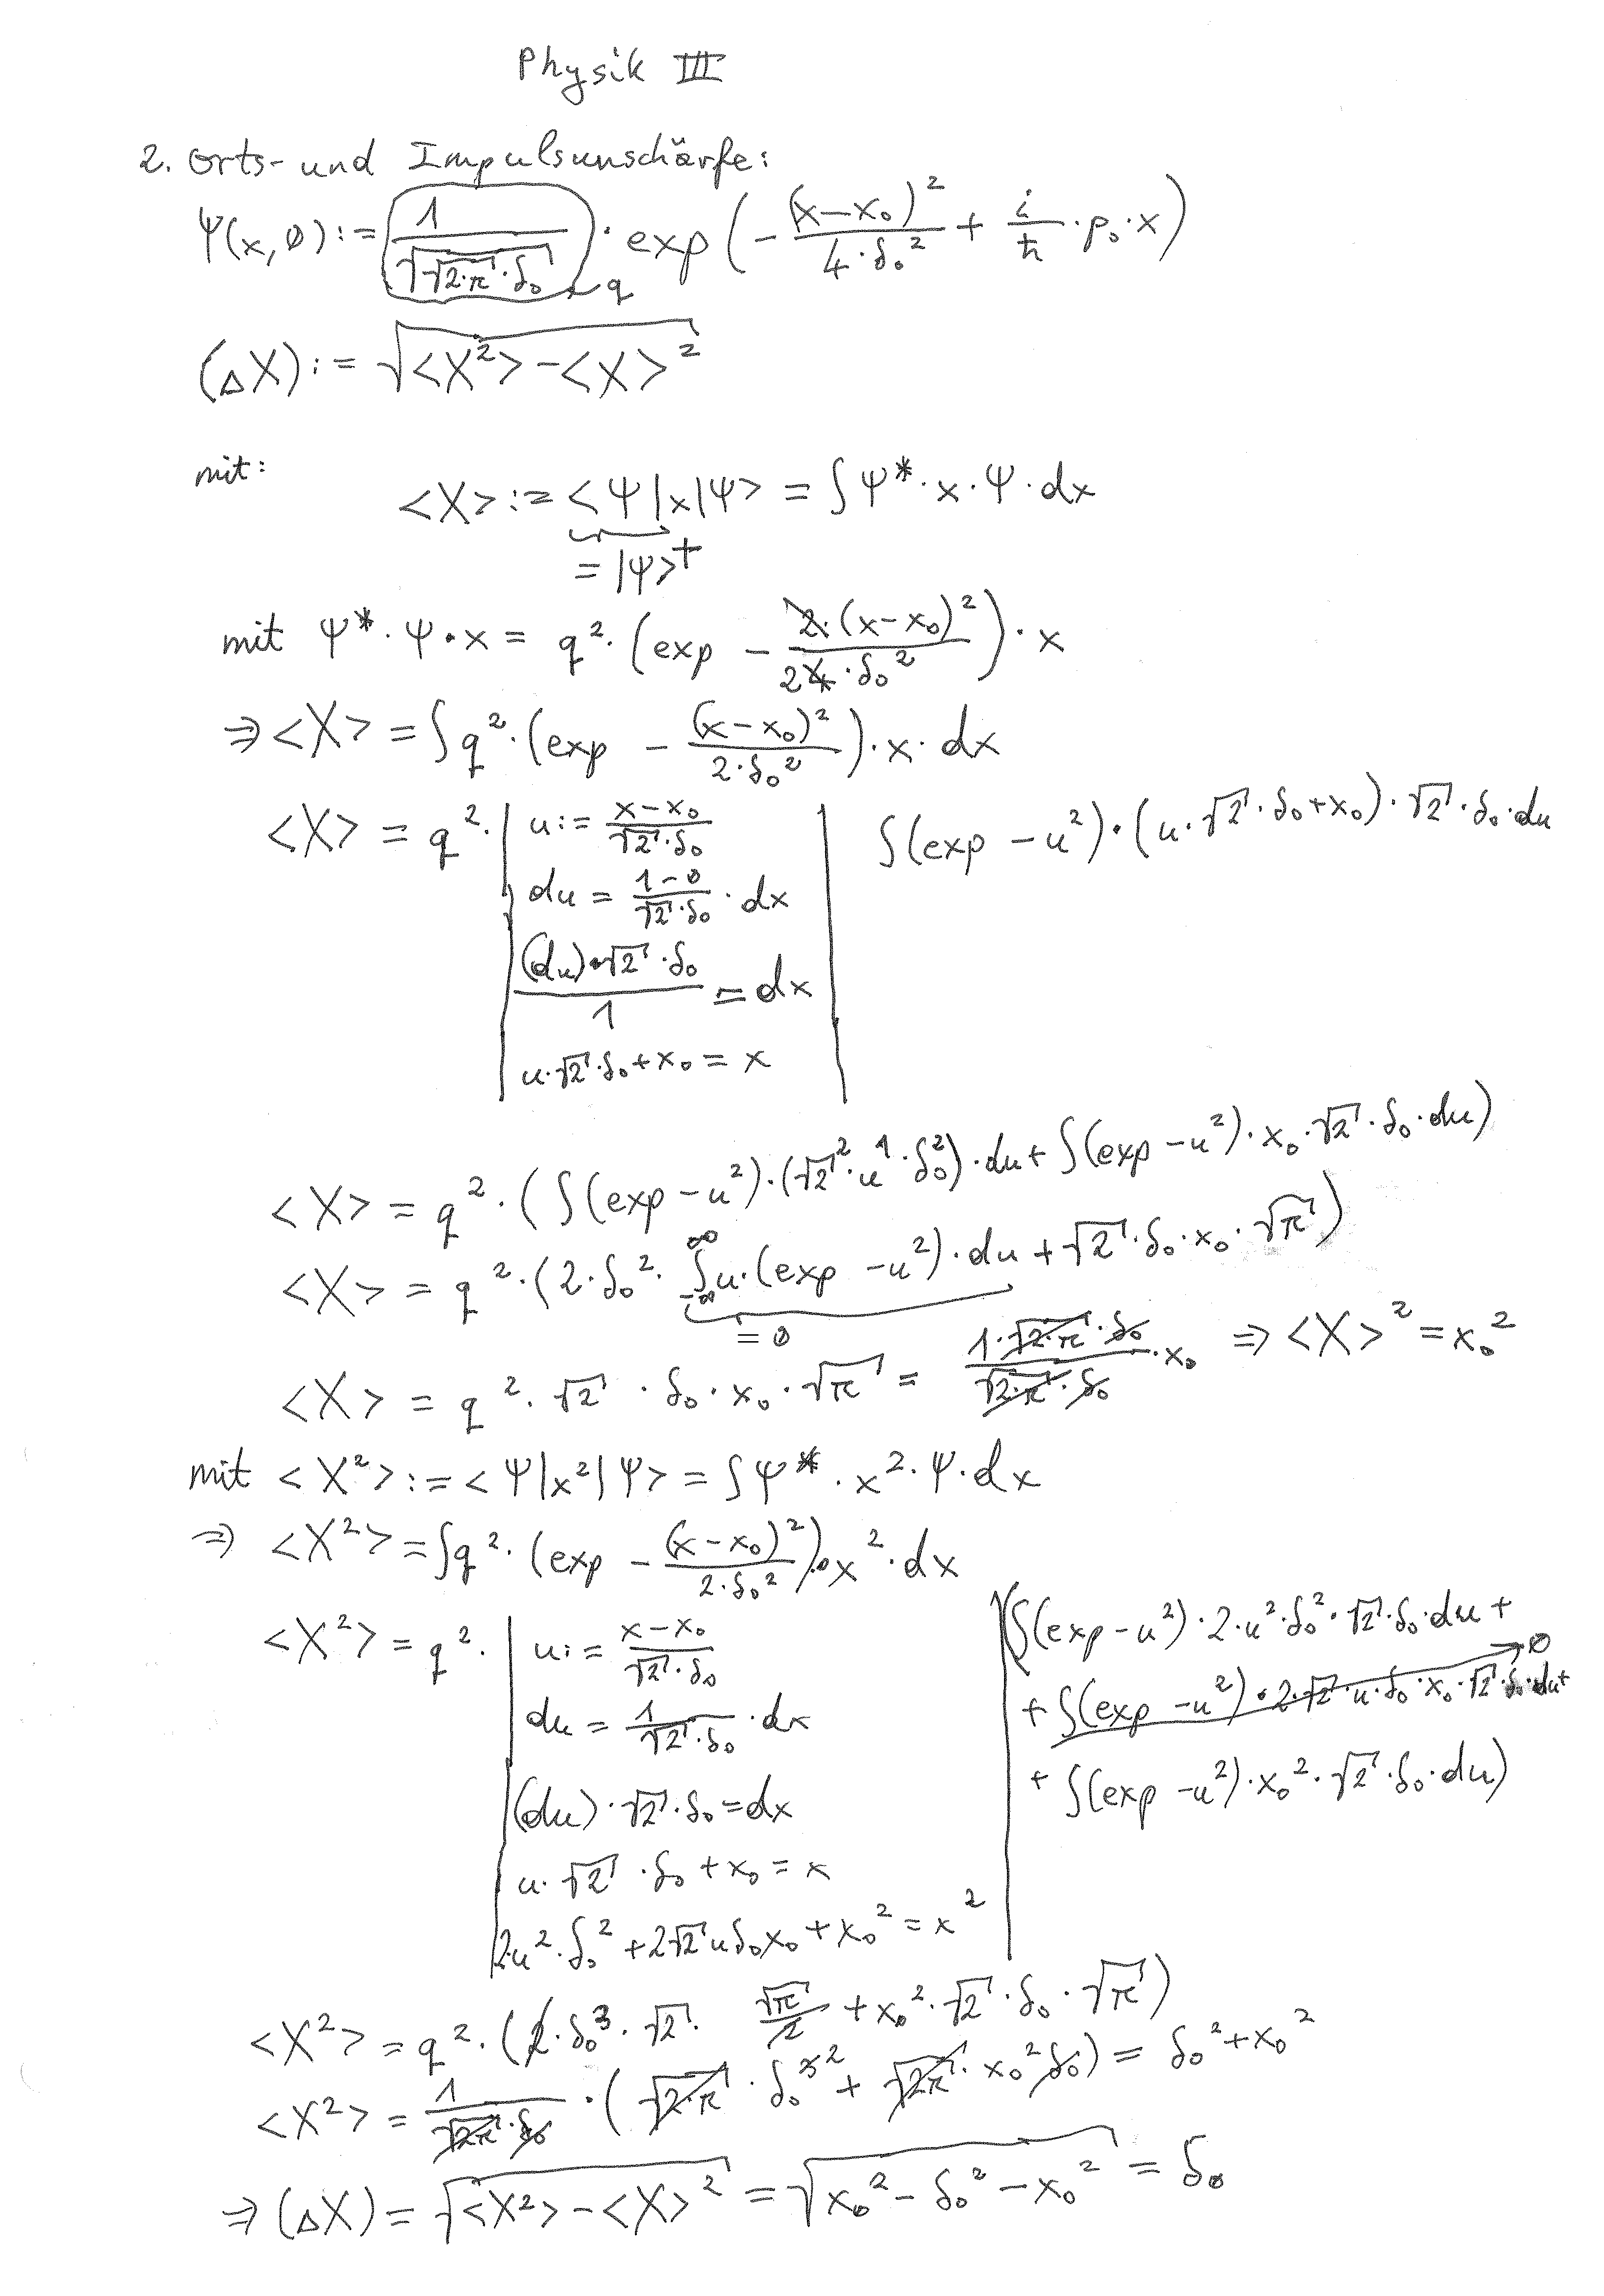 Physik III
2. Orts- und Impulsunschärfe:
Ψ(x,0) := 1/√(√(2·π)·δ₀) · exp(-(x-x₀)²/(4·δ₀²) + i/ħ·p₀·x)
q
(ΔX) := √(<X²> - <X>²)
mit:
<X> := <Ψ|x|Ψ> = ∫Ψ*·x·Ψ·dx
= |Ψ>†
mit Ψ*·Ψ·x = q²·(exp - 2·(x-x₀)²/(2 4·δ₀²))·x
⇒ <X> = ∫q²·(exp - (x-x₀)²/(2·δ₀²))·x·dx
<X> = q²· | u := (x-x₀)/(√2·δ₀) | ∫(exp -u²)·(u·√2·δ₀+x₀)·√2·δ₀·du
du = (1-0)/(√2·δ₀)·dx
(du)·√2·δ₀/1 = dx
u·√2·δ₀+x₀ = x
<X> = q²·(∫(exp -u²)·(√2²·u¹·δ₀²)·du + ∫(exp -u²)·x₀·√2·δ₀·du)
<X> = q²·(2·δ₀²·∫_{-∞}^{∞} u·(exp -u²)·du + √2·δ₀·x₀·√π)
= 0
<X> = q²·√2·δ₀·x₀·√π = (1·√(2·π)·δ₀)/(√(2·π)·δ₀)·x₀ ⇒ <X>² = x₀²
mit <X²> := <Ψ|x²|Ψ> = ∫Ψ*·x²·Ψ·dx
⇒ <X²> = ∫q²·(exp - (x-x₀)²/(2·δ₀²))·x²·dx
<X²> = q²· | u := (x-x₀)/(√2·δ₀) | (∫(exp -u²)·2·u²·δ₀²·√2·δ₀·du +
+ ∫(exp -u²)·2·√2·u·δ₀·x₀·√2·δ₀·du + → 0
du = 1/(√2·δ₀)·dx
+ ∫(exp -u²)·x₀²·√2·δ₀·du)
(du)·√2·δ₀ = dx
u·√2·δ₀ + x₀ = x
2u²·δ₀² + 2√2uδ₀x₀ + x₀² = x²
<X²> = q²·(2·δ₀³·√2· √π/2 + x₀²·√2·δ₀·√π)
<X²> = 1/(√(2π)·δ₀)·(√(2·π)·δ₀³ ² + √(2π)·x₀²δ₀) = δ₀²+x₀²
⇒ (ΔX) = √(<X²> - <X>²) = √(x₀² - δ₀² - x₀²) = δ₀